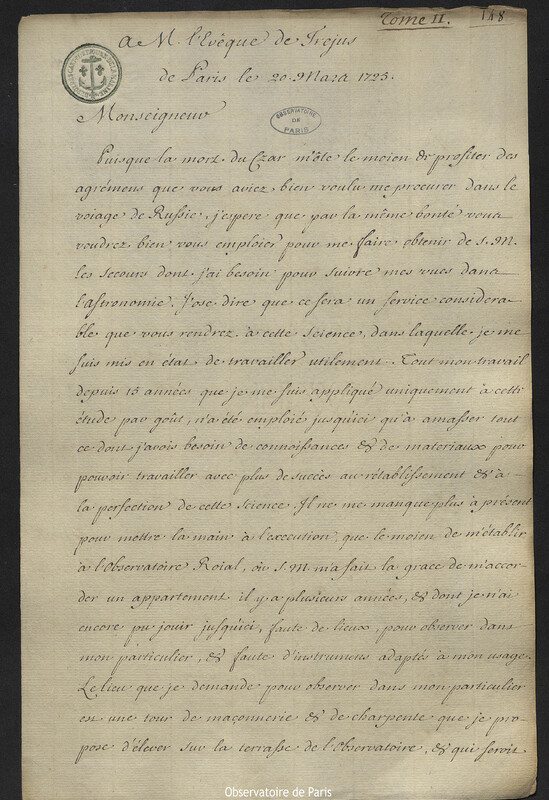 Tome II. 1.4.8
A M. l'Evêque de Frejus
de Paris le 20 Mars 1725.
Monseigneur
OBSERVATOIRE
DE
PARIS
Puisque la mort du Czar m'ôte le moien de profiter des
agrémens que vous aviez bien voulu me procurer dans le
voiage de Russie, j'espere que par la même bonté vous
voudrez bien vous emploier pour me faire obtenir de S.M.
les secours dont j'ai besoin pour suivre mes vues dans
l'astronomie. J'ose dire que ce sera un service considera-
ble que vous rendrez à cette science, dans laquelle je me
suis mis en état de travailler utilement. Tout mon travail
depuis 15 années que je me suis appliqué uniquement à cette
étude par goût, n'a été emploié jusqu'ici qu'à amasser tout
ce dont j'avois besoin de connoissances & de materiaux pour
pouvoir travailler avec plus de succès au rétablissement & à
la perfection de cette science. Il ne me manque plus à présent
pour mettre la main à l'execution, que le moien de m'établir
à l'Observatoire Roial, où S.M. m'a fait la grace de m'accor-
der un appartement il y a plusieurs années, & dont je n'ai
encore pu jouir jusqu'ici, faute de lieux, pour observer dans
mon particulier, & faute d'instrumens adaptés à mon usage.
Le lieu que je demande pour observer dans mon particulier
est une tour de maçonnerie & de charpente que je pro-
pose d'élever sur la terrasse de l'Observatoire, & qui seroit
Observatoire de Paris